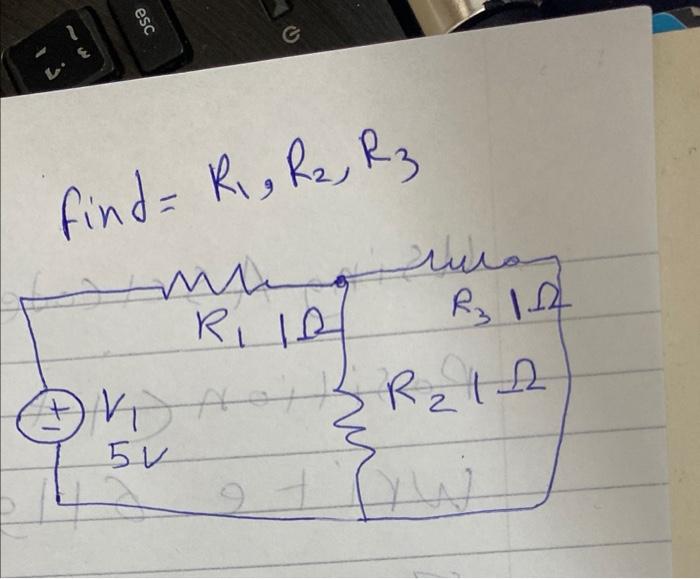 esc
find = R1, R2, R3
R1 1Ω
R3 1Ω
R2 1Ω
V1
5V